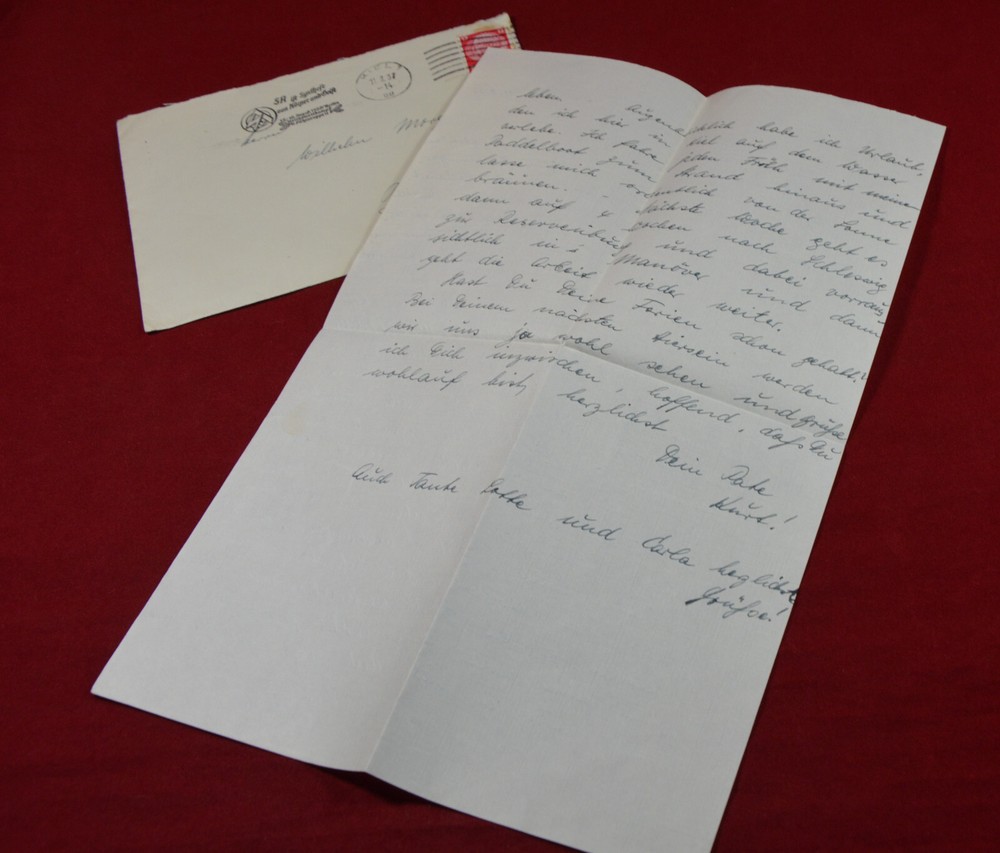 SA ist Spiegel
von Körper und Geist
Kiel
Wilhelm
leben. Augenblicklich habe ich Urlaub,
den ich hier in auf dem Wasser
verlebe. Ich fahre jeden Früh mit meinem
Paddelboot zum Strand hinaus und
lasse mich ordentlich von der Sonne
bräunen. - Nächste Woche geht es
dann auf 4 Wochen nach Schleswig
zur Reserveübung und dabei voraus-
sichtlich ins Manöver und dann
geht die Arbeit wieder weiter.
Hast Du Deine Ferien schon gehabt?
Bei Deinem nächsten Hiersein werden
wir uns ja wohl sehen und grüße
ich Dich inzwischen, hoffend, daß Du
wohlauf bist, herzlichst
Dein Pate
Kurt!
Auch Tante Lotte und Carla herzlichste
Grüße!